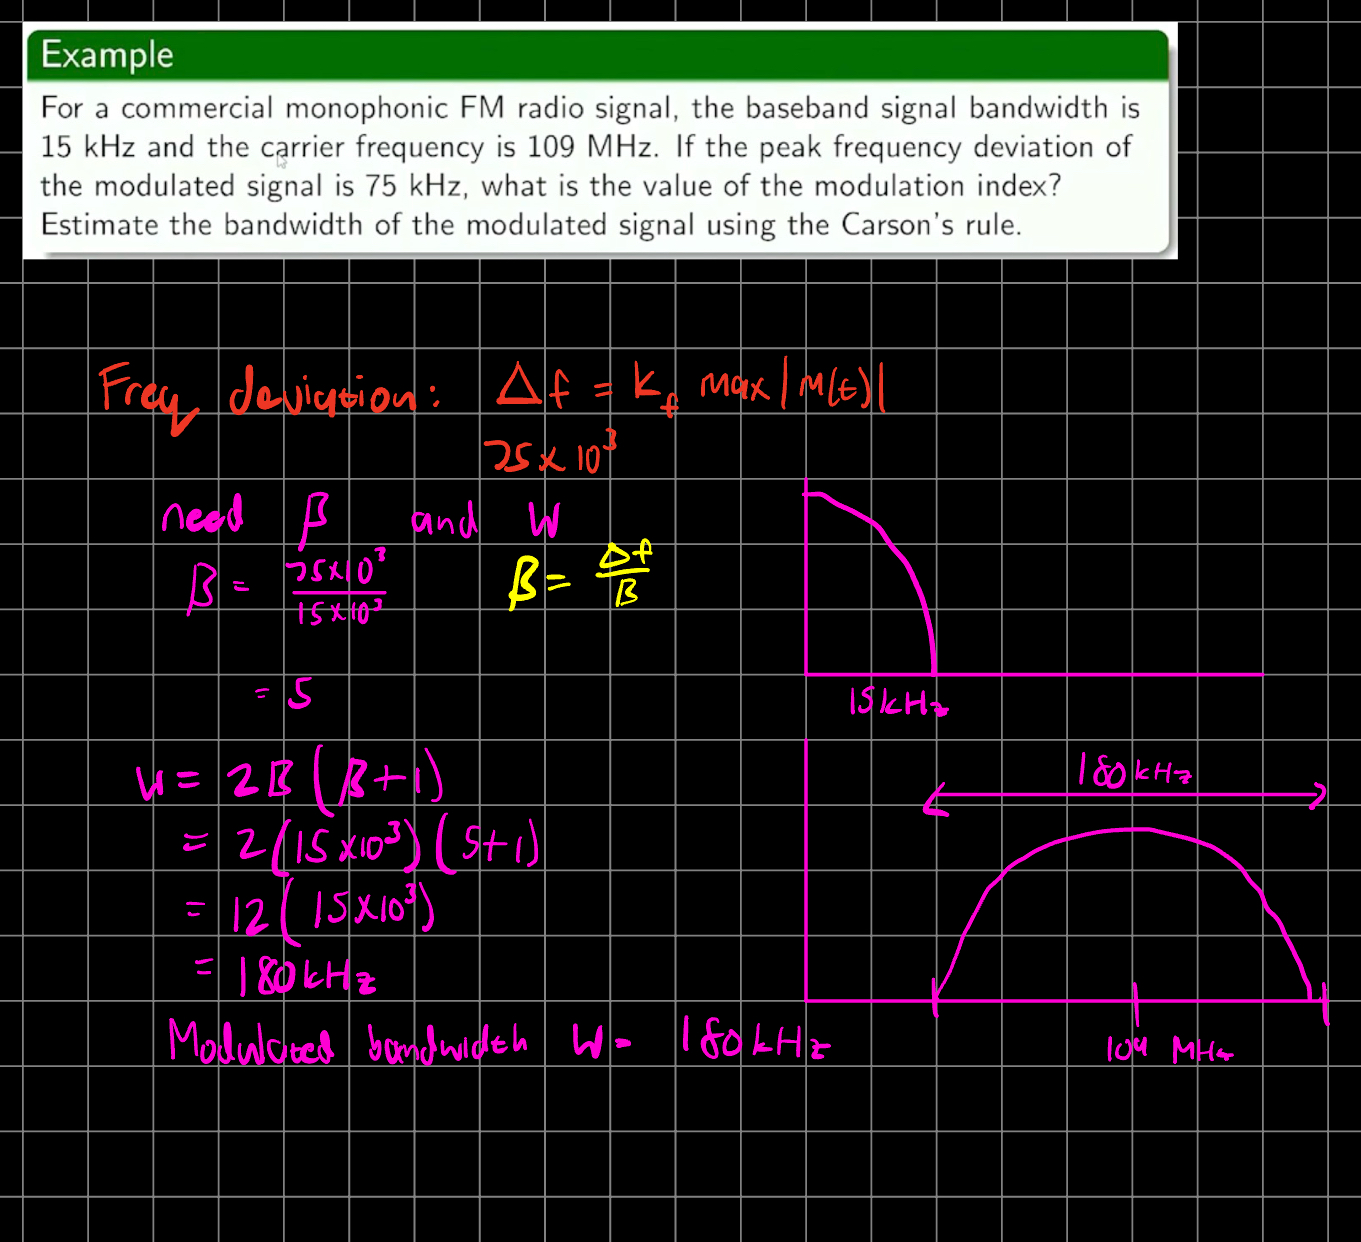 Example
For a commercial monophonic FM radio signal, the baseband signal bandwidth is
15 kHz and the carrier frequency is 109 MHz. If the peak frequency deviation of
the modulated signal is 75 kHz, what is the value of the modulation index?
Estimate the bandwidth of the modulated signal using the Carson's rule.
Freq deviation: Δf = k_f max|m(t)|
75×10³
need β and W
β = 75×10³ / 15×10³
β = Δf / B
= 5
15kHz
W = 2B(β+1)
= 2(15×10³)(5+1)
= 12(15×10³)
= 180kHz
180kHz
Modulated bandwidth W = 180kHz
109 MHz